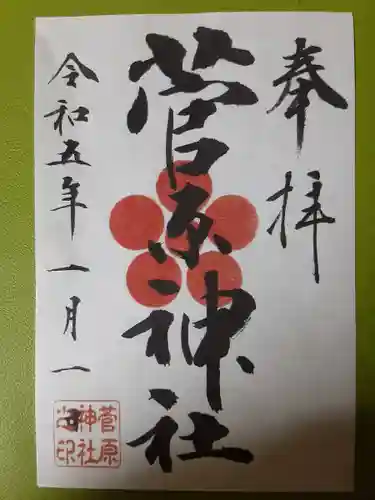 奉拝
菅原神社
令和五年一月一日
菅原
神社
之印